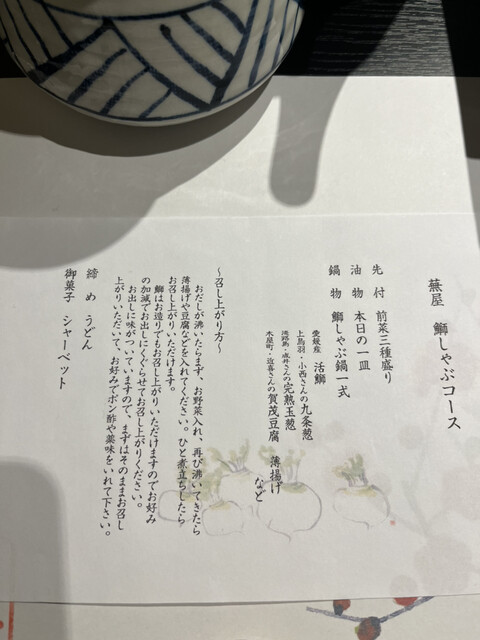 蕪屋 鰤しゃぶコース
先付 前菜三種盛り
油物 本日の一皿
鍋物 鰤しゃぶ鍋一式
愛媛産 活鰤
上鳥羽・小西さんの九条葱
淡路島・成井さんの完熟玉葱
木屋町・近喜さんの賀茂豆腐 薄揚げ
など
～召し上がり方～
おだしが沸いたらまず、お野菜入れ、再び沸いてきたら
薄揚げや豆腐などを入れてください。ひと煮立ちしたら
お召し上がりいただけます。
鰤はお造りでもお召し上がりいただけますのでお好み
の加減でお出しにくぐらせてお召し上がりください。
お出しに味がついていますので、まずはそのままお召し
上がりいただいて、お好みでポン酢や薬味をいれて下さい。
締め うどん
御菓子 シャーベット